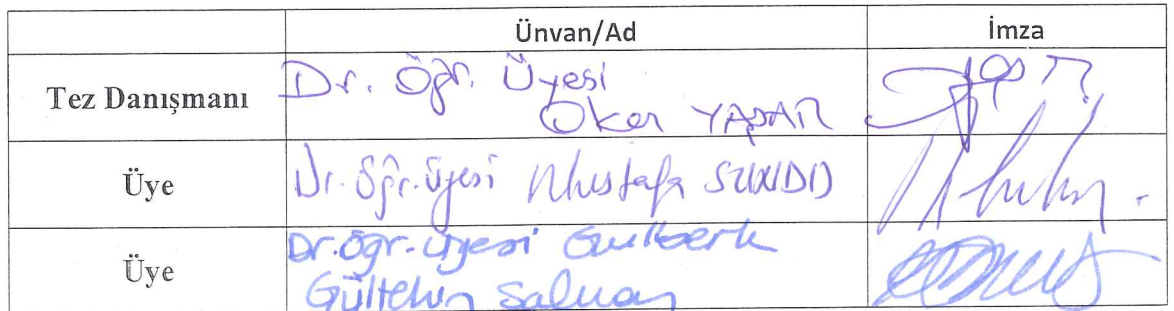 Ünvan/Ad İmza
Tez Danışmanı Dr. Öğr. Üyesi
Oker YAŞAR
Üye Dr. Öğr. Üyesi Mustafa
Üye Dr. Öğr. Üyesi
Gültekin Salman